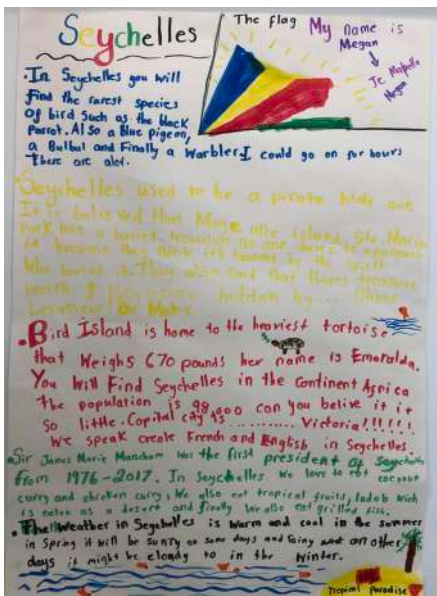 Seychelles
The flag
My name is
Megan
Je
Megan
• In Seychelles you will
find the rarest species
of bird Such as the black
Parrot. Also a Blue pigeon,
a Bulbul and Finally a Warbler I could go on for hours
There are alot.
Seychelles used to be a pirate hide out
It is believed that
has a buried treasure no one
it because they think it's haunted by the
Who buried it. They also said that theres treasure
worth hidden by... Oliver
Levasseur on Mahe
• Bird Island is home to the heaviest tortoise
that Weighs 670 pounds her name is Emeralda.
You Will Find Seychelles in the continent Africa
the population is 98,000 can you belive it it
so little. Capital city is .......... Victoria!!!!!!
We speak creole French and English in Seychelles.
• Sir James Marie Mancham was the first president of Seychelles
from 1976-2017. In Seychelles We love to eat coconut
curry and chicken curry. We also eat tropical fruits, ladob wich
is eaten as a desert and finally We also eat grilled fish.
• The Weather in Seychelles is Warm and cool in the summer
in Spring it will be sunny on some days and rainy on other
days it might be cloudy to in the Winter.
Tropical Paradise